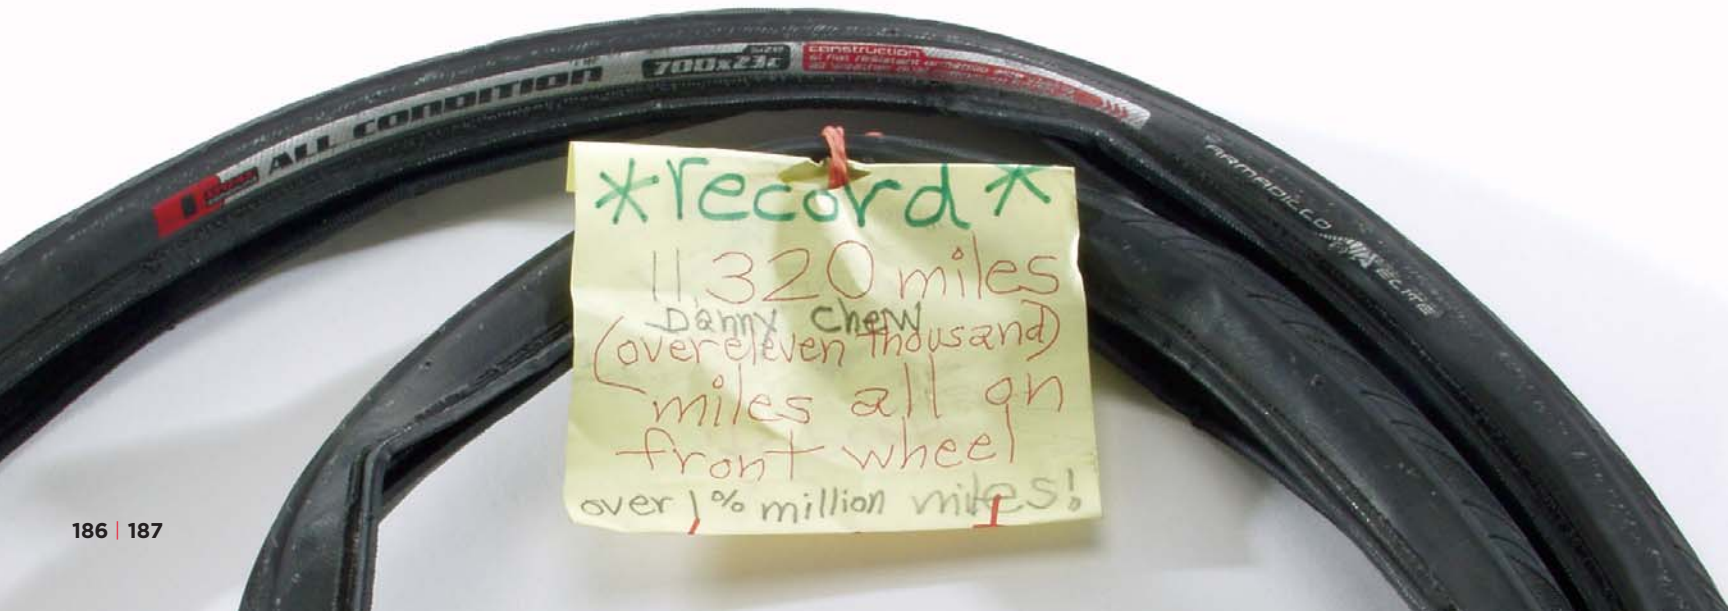 ALL CONDITION
SIZE
700x23c
construction
ARMADILLO
ELITE
*record*
11,320 miles
Danny Chew
(over eleven thousand)
miles all on
front wheel
over 1% million miles!
186 | 187